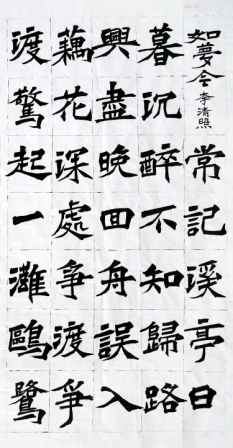 如夢令 李清照
常記溪亭日
暮沉醉不知歸路
興盡晚回舟誤入
藕花深處爭渡爭
渡驚起一灘鷗鷺